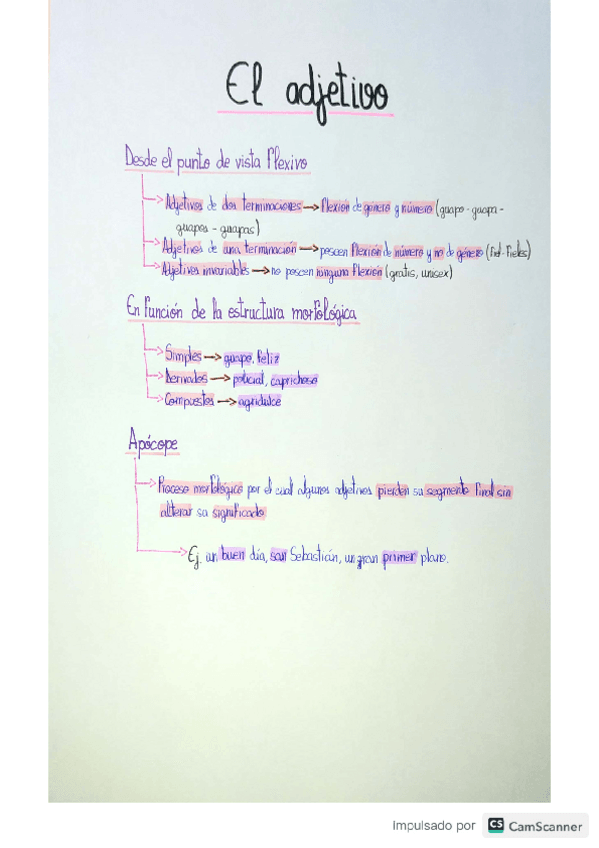 El adjetivo
Desde el punto de vista flexivo
Adjetivos de dos terminaciones → flexión de género y número (guapo - guapa -
guapos - guapas)
Adjetivos de una terminación → poseen flexión de número y no de género (fiel-fieles)
Adjetivos invariables → no poseen ninguna flexión (gratis, unisex)
En función de la estructura morfológica
Simples → guapo, feliz
Derivados → policial, caprichoso
Compuestos → agridulce
Apócope
Proceso morfológico por el cual algunos adjetivos pierden su segmento final sin
alterar su significado
Ej. un buen día, san Sebastián, un gran primer plano.
Impulsado por CS CamScanner